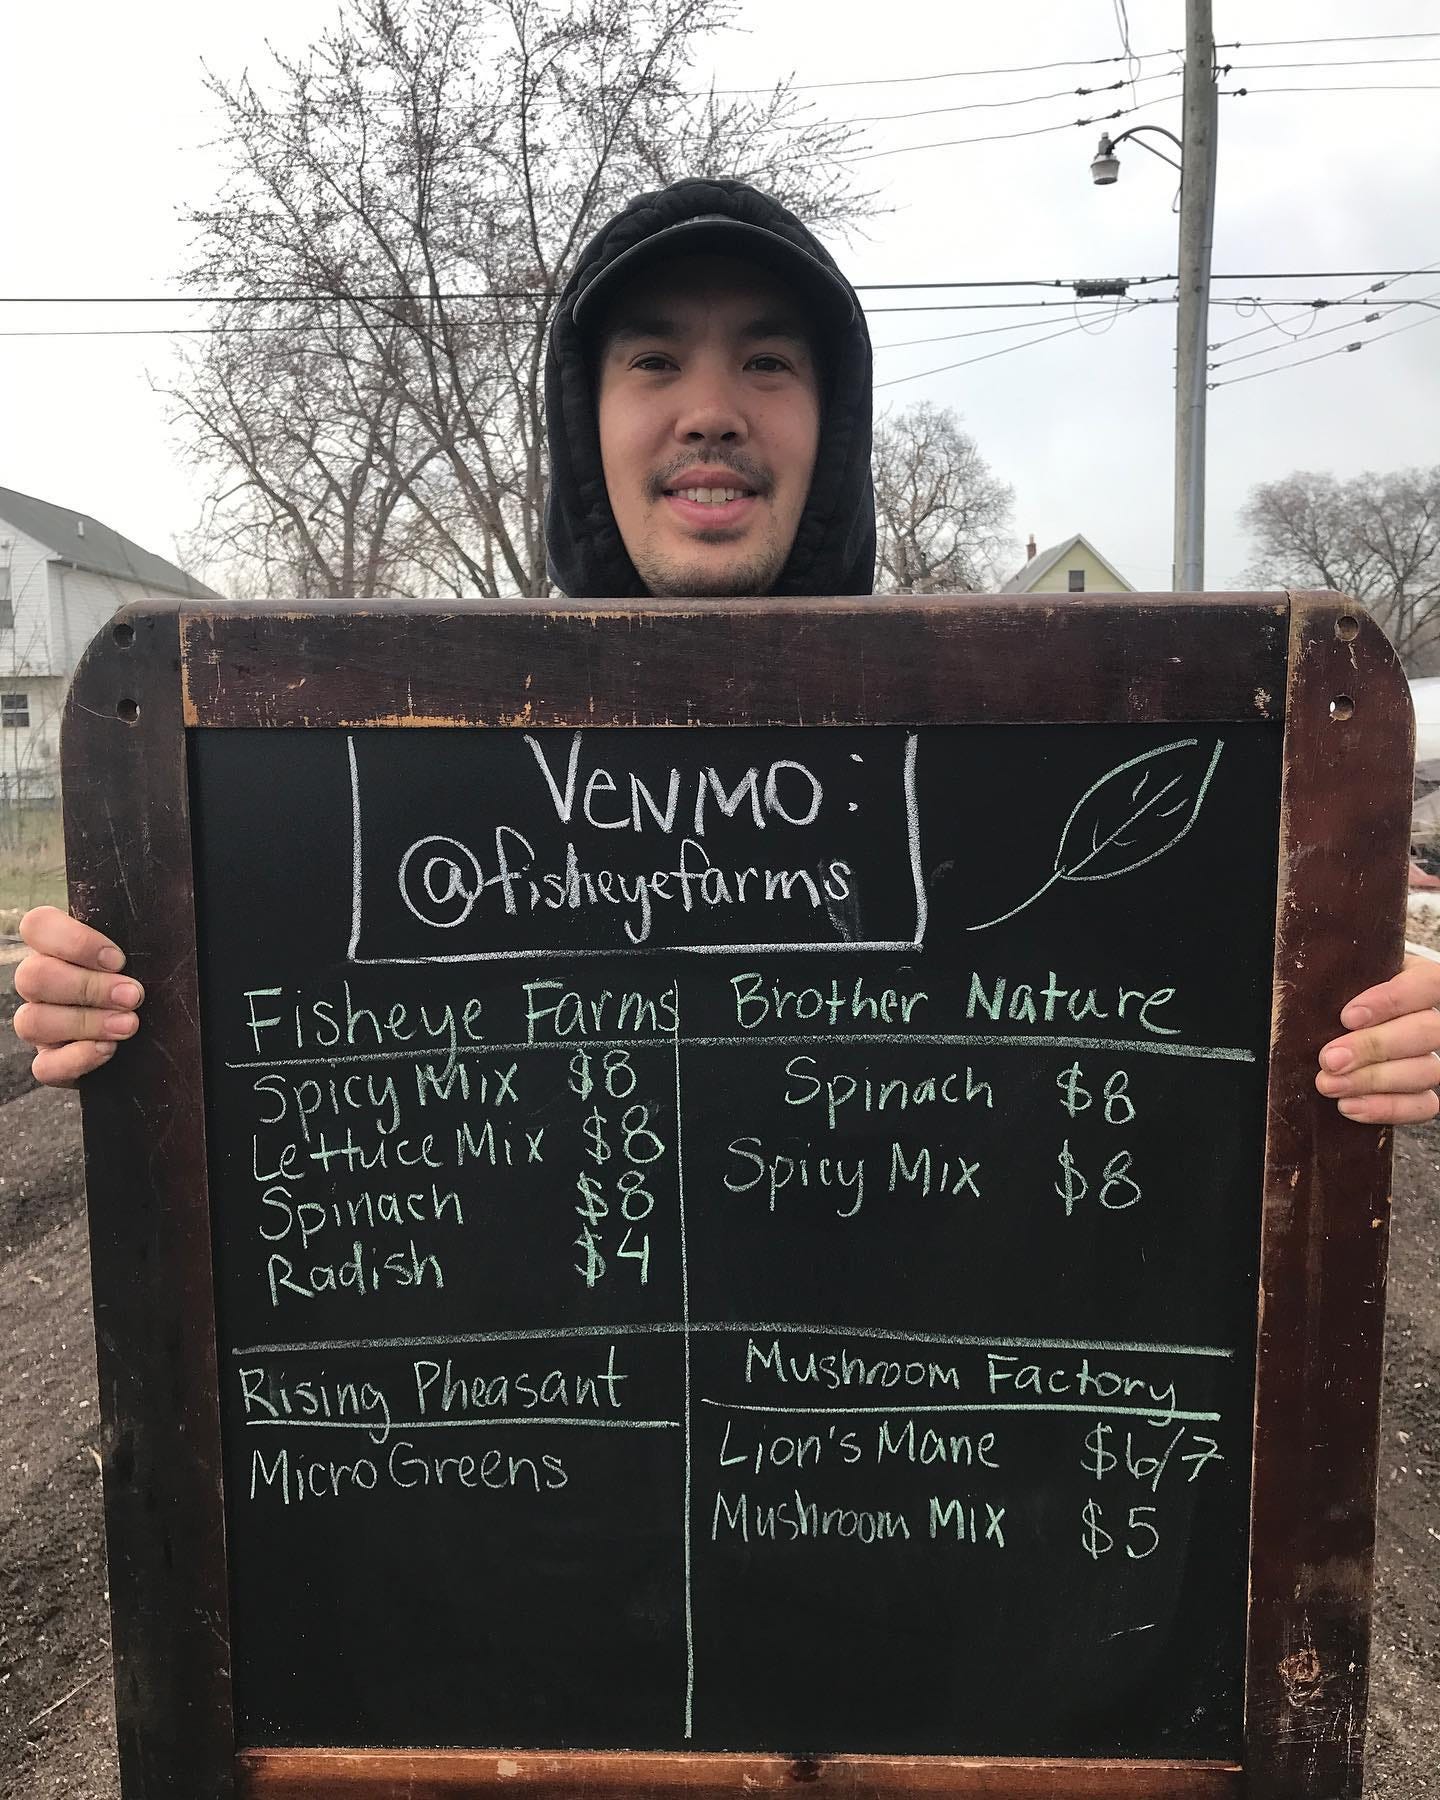 VENMO:
@fisheyefarms
Fisheye Farms
Spicy Mix $8
Lettuce Mix $8
Spinach $8
Radish $4
Brother Nature
Spinach $8
Spicy Mix $8
Rising Pheasant
MicroGreens
Mushroom Factory
Lion's Mane $6/7
Mushroom Mix $5